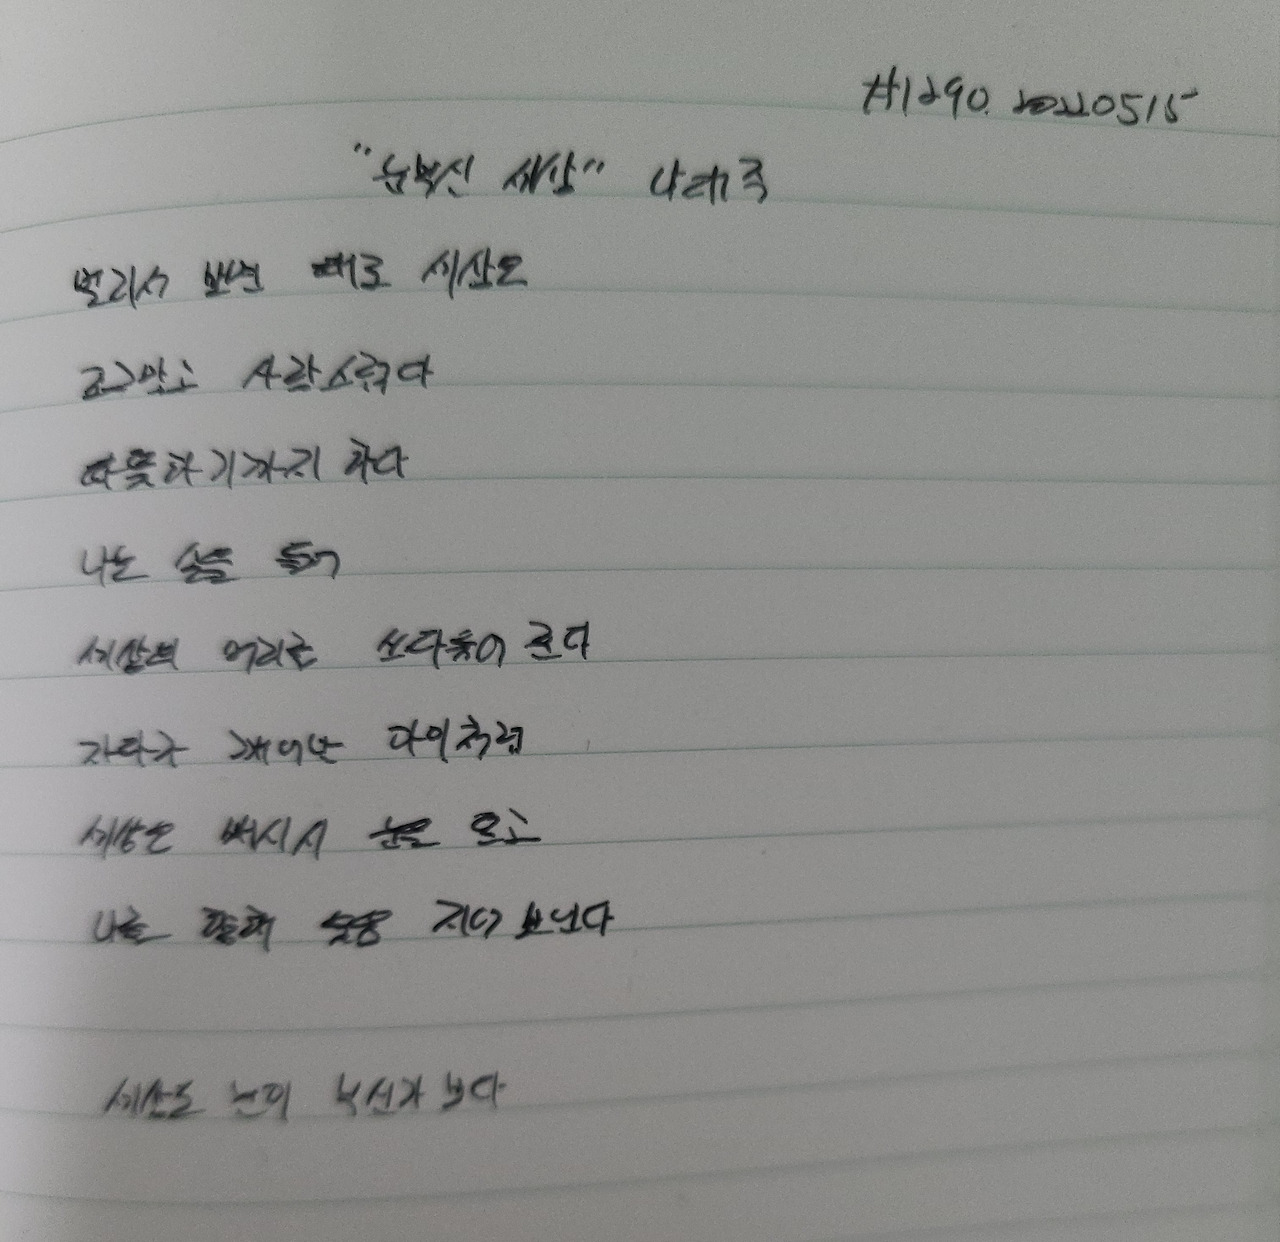 #1290. 20220515
"눈부신 세상" 나태주
멀리서 보면 때로 세상은
조그맣고 사랑스럽다
따뜻하기까지 하다
나는 손을 들어
세상의 머리를 쓰다듬어 준다
자다가 깨어난 아이처럼
세상은 배시시 눈을 뜨고
나를 향해 웃음 지어 보인다
세상도 눈이 부신가 보다